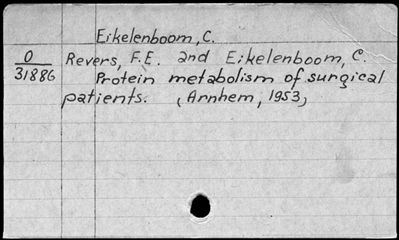 Eikelenboom, C.
O
31886
Revers, F.E. and Eikelenboom, C.
Protein metabolism of surgical
patients. (Arnhem, 1953)